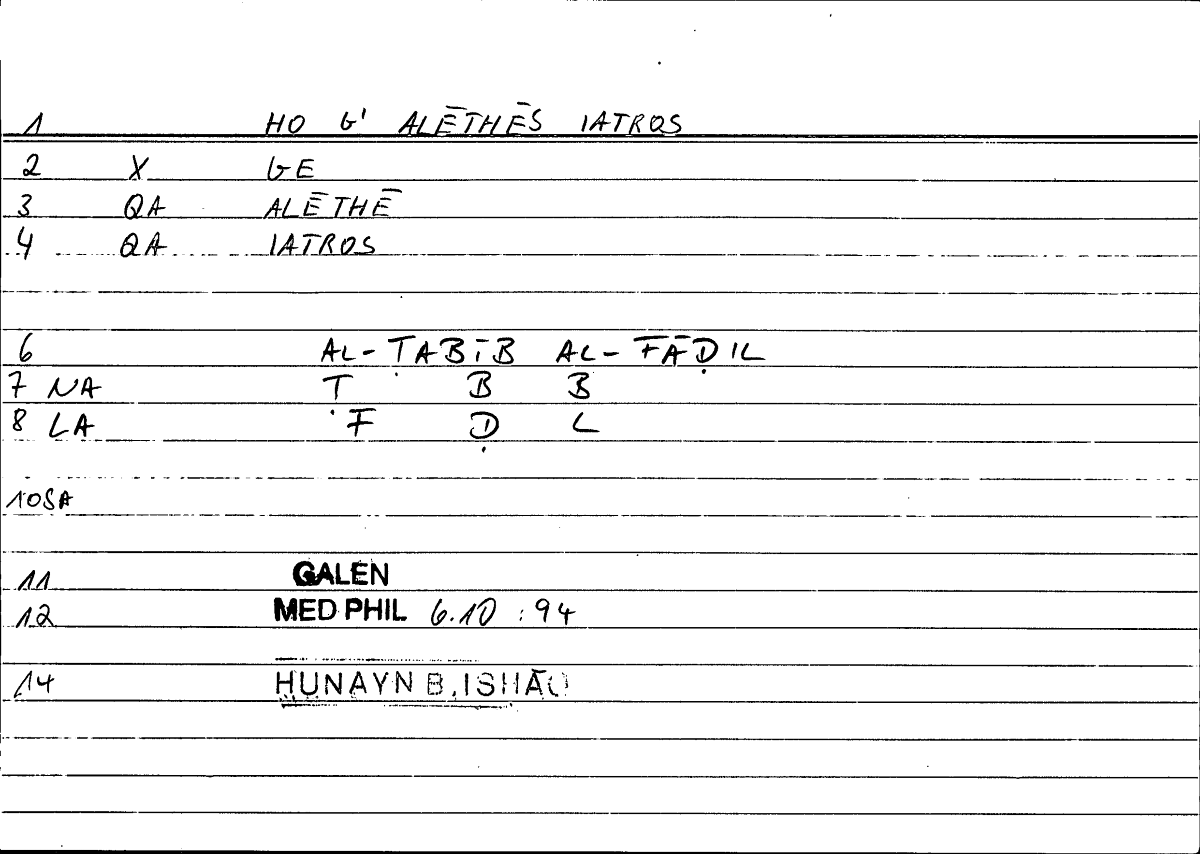 1 HO G' ALĒTHĒS IATROS
2 X GE
3 QA ALĒTHĒ
4 QA IATROS
6 AL-ṬABĪB AL-FĀḌIL
7 NA Ṭ B B
8 LA F Ḍ L
10 SA
11 GALEN
12 MED PHIL 6.10 : 94
14 HUNAYN B. ISHĀQ